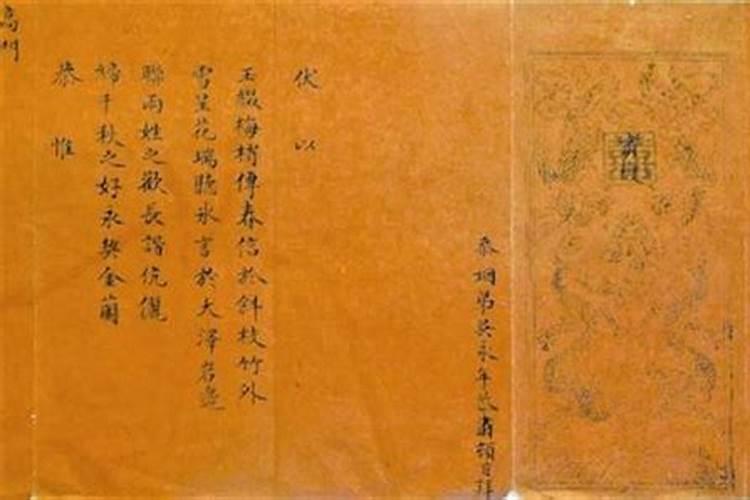 忝姻弟吳永年莊肅頓首拜
伏以
玉綴梅梢傳春信於斜枝竹外
雪呈花瑞聽冰言於大澤岩邊
聯兩姓之歡長諧伉儷
締千秋之好永契金蘭
恭惟
高門